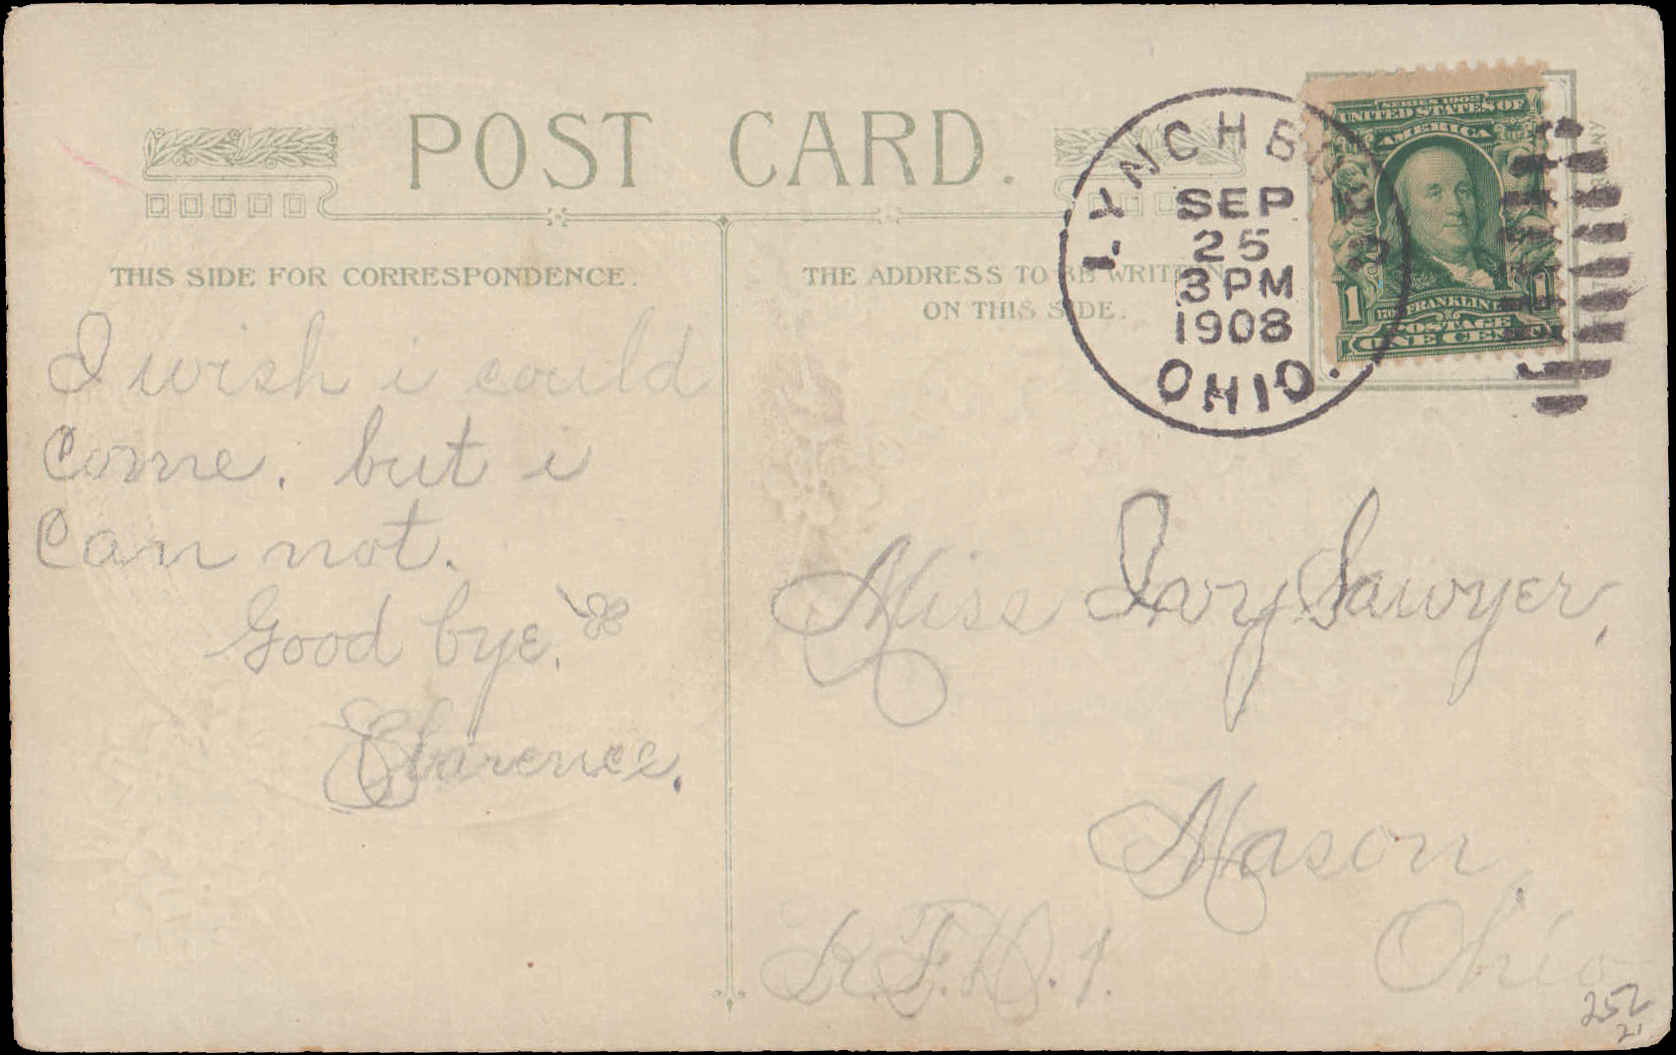 POST CARD.
THIS SIDE FOR CORRESPONDENCE.
THE ADDRESS TO BE WRITTEN
ON THIS SIDE.
LYNCHBURG
SEP
25
3 PM
1908
OHIO.
SERIES 1902
UNITED STATES OF
AMERICA
1 FRANKLIN 1
POSTAGE
ONE CENT
I wish i could
Come. but i
Can not.
Good bye.
Clarence.
Miss Ivy Sawyer,
Mason,
Ohio
R.F.D. 1.
252
21